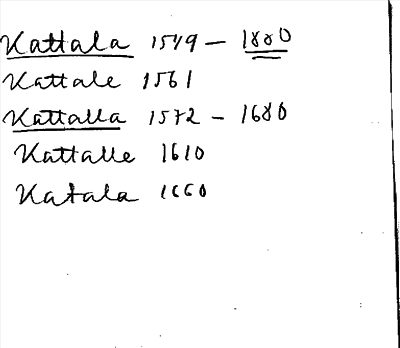 Kattala 1549 – 1880
Kattale 1561
Kattalla 1572 – 1680
Kattalle 1610
Katala 1660